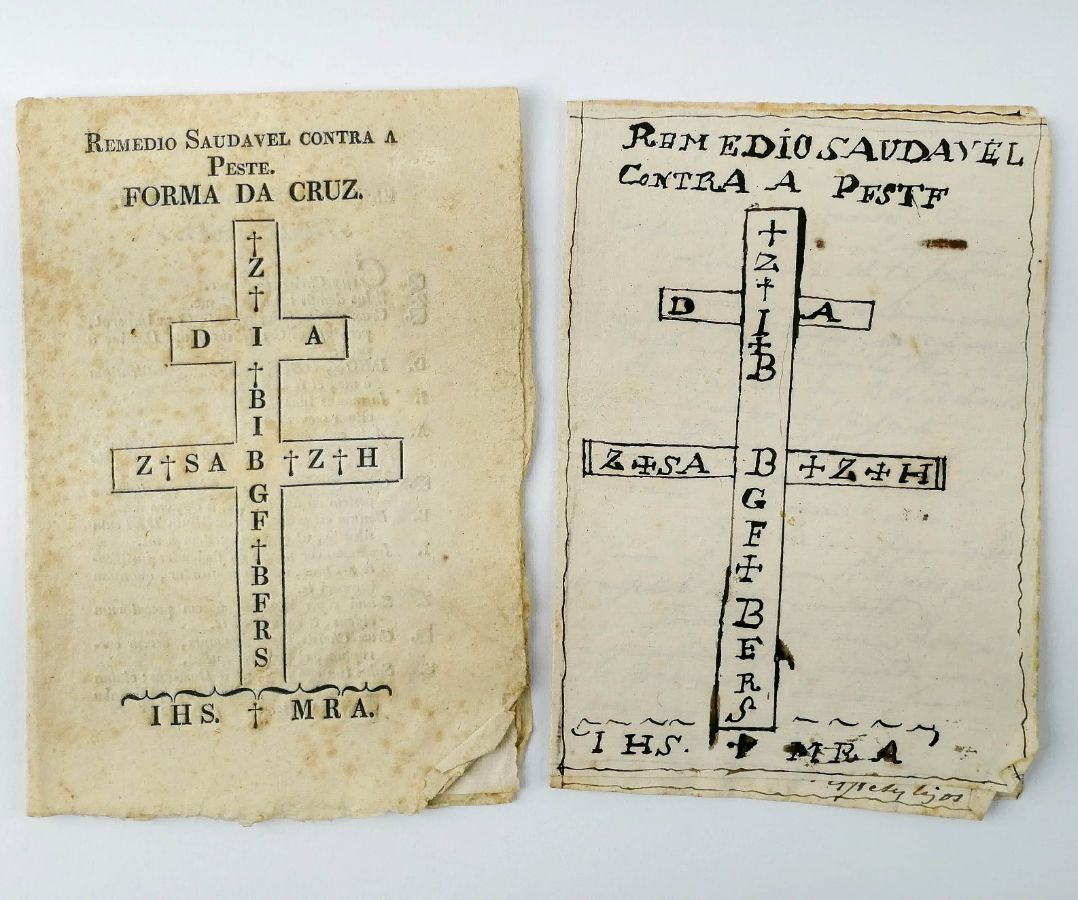 REMEDIO SAUDAVEL CONTRA A
PESTE.
FORMA DA CRUZ.
†
Z
†
D I A
†
B
I
Z † S A B † Z † H
G
F
†
B
F
R
S
I H S. † M R A.
REMEDÍO SAUDAVEL
CONTRA A PESTE
✝
Z
✝
D I A
✝
B
Z ✝ SA B ✝ Z ✝ H
G
F
✝
B
E
R
S
I HS. ✝ MRA